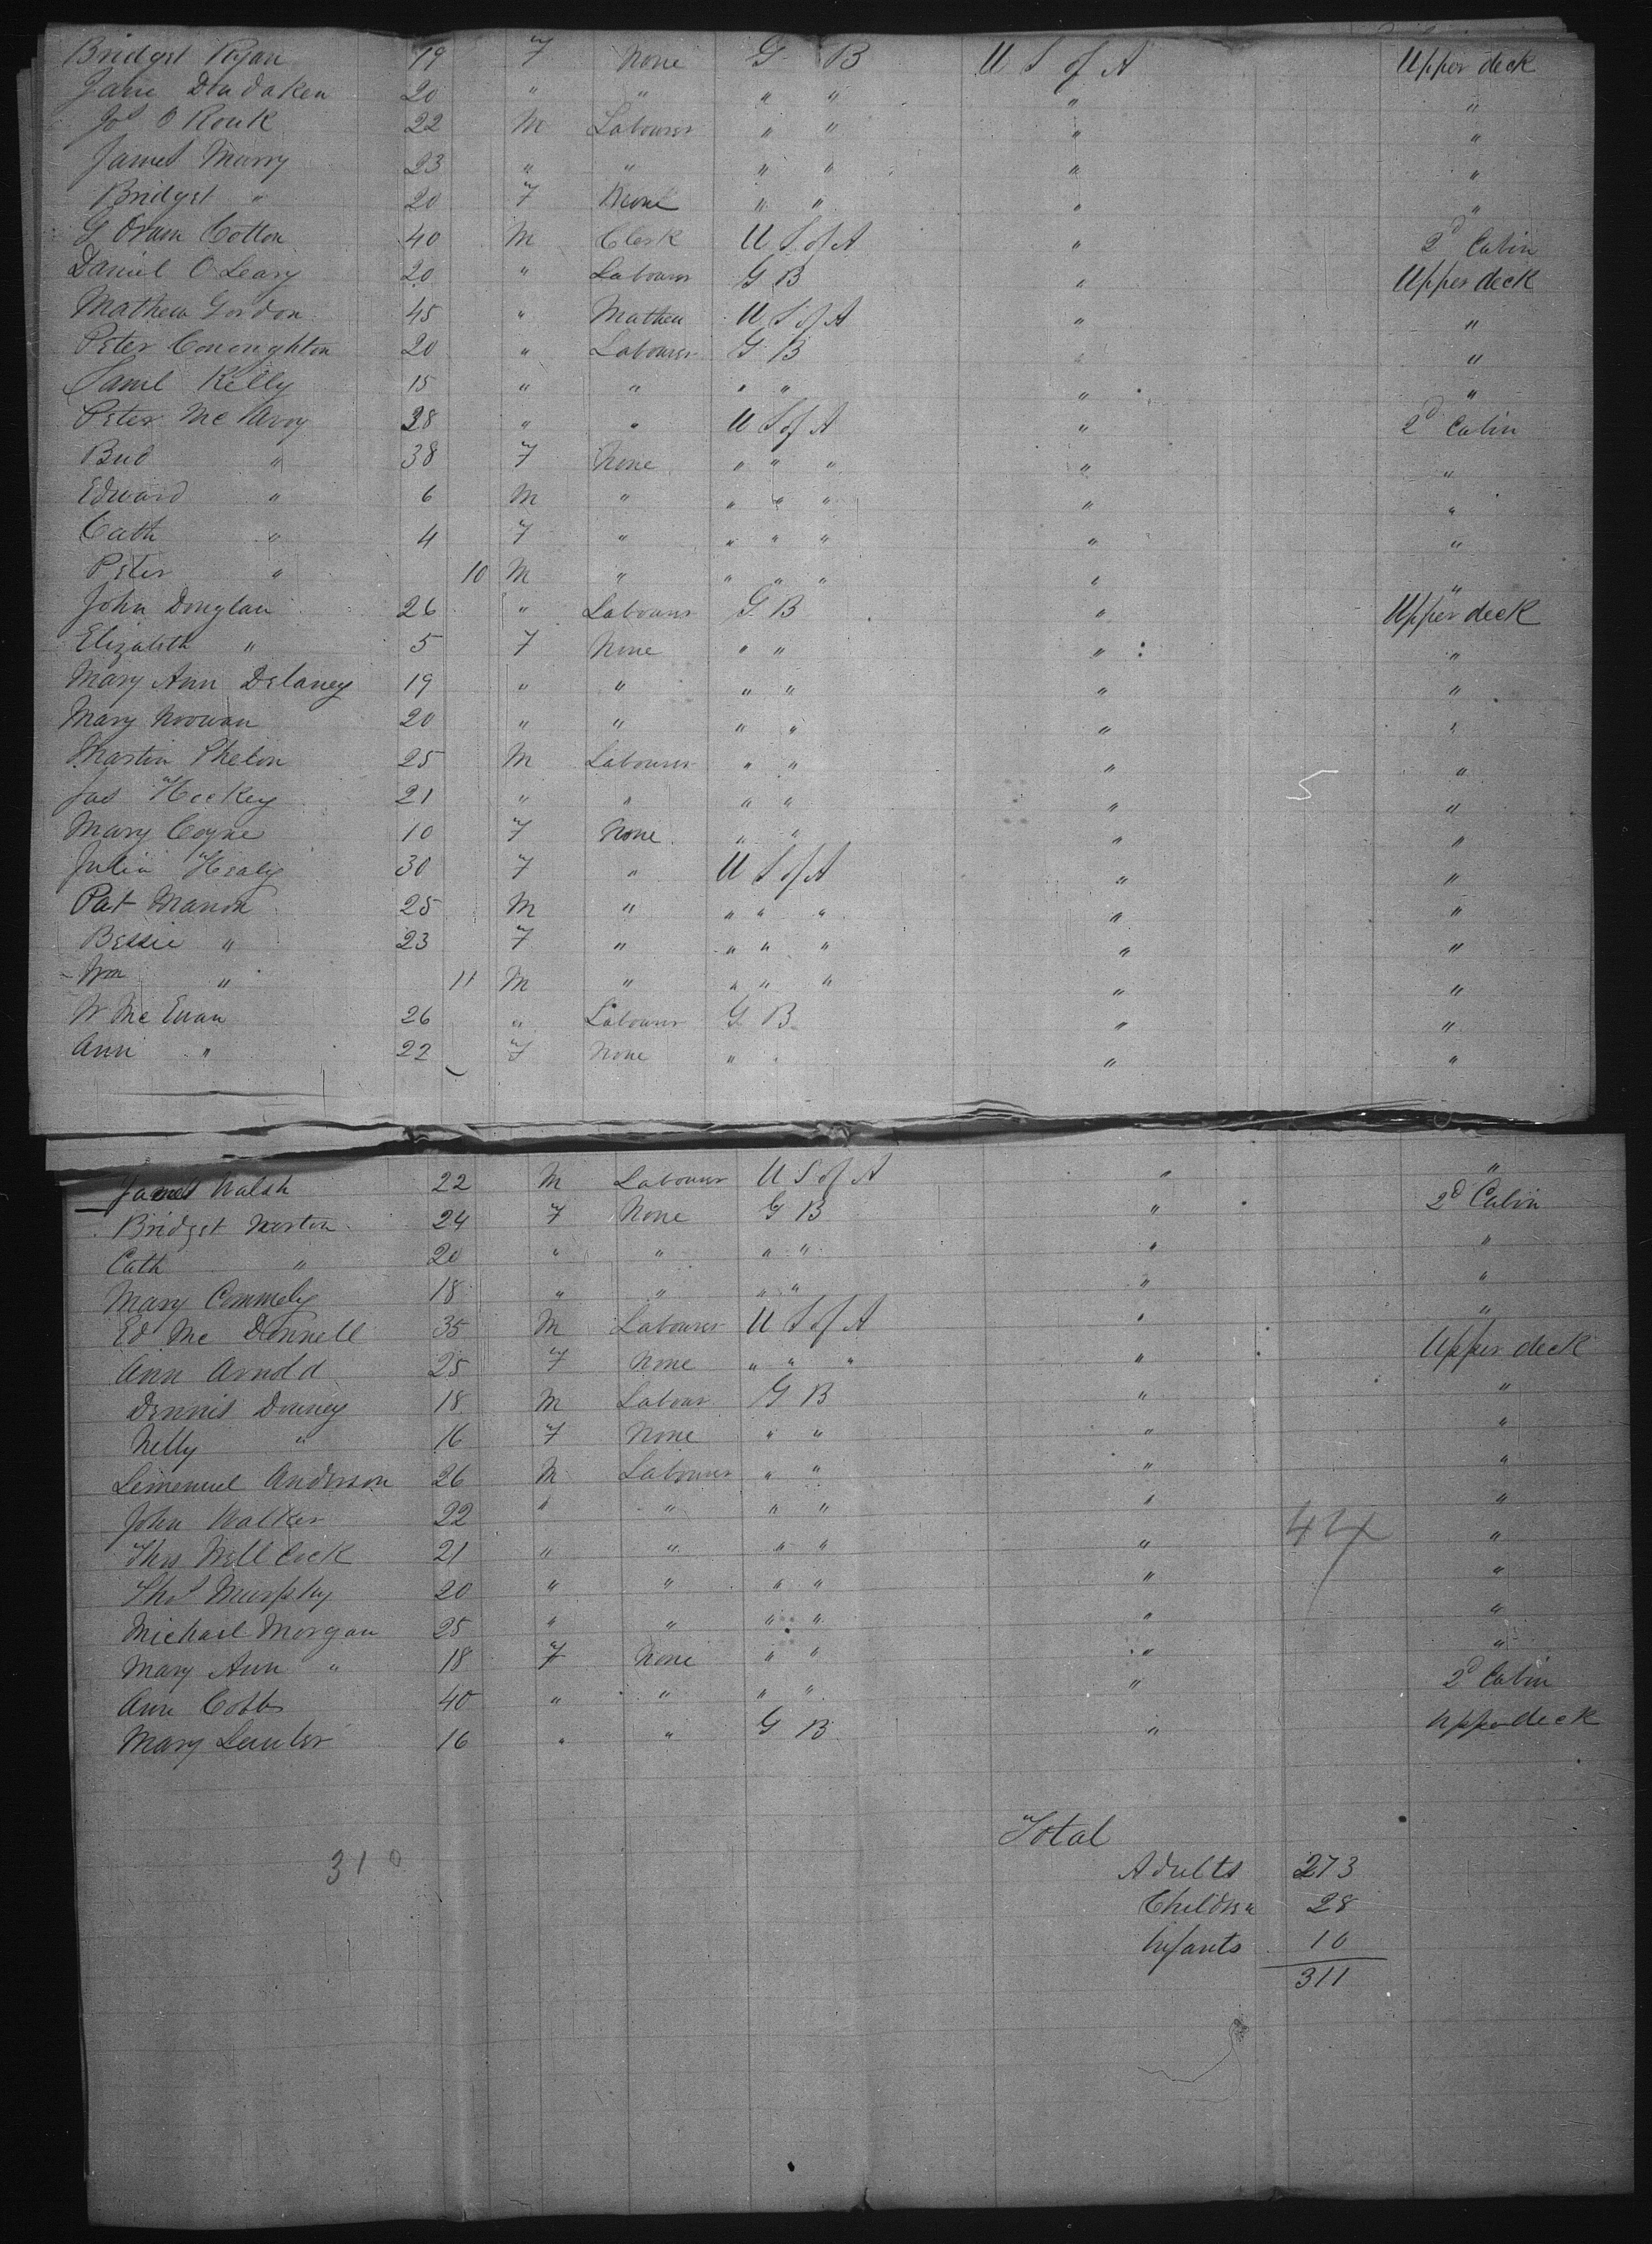 Bridget Ryan 19 F None G B U S of A Upper deck
Jane 20 " " " " " "
Jos O Rouk 22 M Labourer " " " "
James Murry 23 " " " " " "
Bridget " 20 F None " " " "
G Oram Cotton 40 M Clerk U S of A " 2d Cabin
Daniel O Leary 20 " Labourer G B " Upper deck
Mathew Gordon 45 " Mathew U S of A " "
Peter Cononghton 20 " Labourer G B " "
Saml Kelly 15 " " " " " "
Peter Mc Avoy 38 " " U S of A " 2d Cabin
Bud " 38 F None " " " " "
Edward " 6 M " " " " " "
Cath " 4 F " " " " " "
Peter " 10 M " " " " " "
John Douglan 26 " Labourer G B " Upper deck
Elizabeth " 5 F None " " " "
Mary Ann Delaney 19 " " " " " "
Mary Noowan 20 " " " " " "
Martin Phelon 25 M Labourer " " " "
Jas Hickey 21 " " " " " 5 "
Mary Coyne 10 F None " " " "
Julia Healy 30 F " U S of A " "
Pat Manon 25 M " " " " " "
Bessie " 23 F " " " " " "
Wm " 11 M " " " " " "
W Mc Euan 26 " Labourer G B " "
Ann " 22 F None " " " "
James Walsh 22 M Labourer U S of A " "
Bridget Norton 24 F None G B " 2d Cabin
Cath " 20 " " " " " "
Mary Connnely 18 " " " " " "
Ed Mc Donnell 35 M Labourer U S of A " "
Ann Arnold 25 F None " " " " Upper deck
Dennis Downey 18 M Labour G B " "
Nelly " 16 F None " " " "
Lemenuel Anderson 26 M Labourer " " " "
John Walker 22 " " " " " "
Thos Well Cock 21 " " " " " 44 "
Thos Murphy 20 " " " " " "
Michael Morgan 25 " " " " " "
Mary Ann " 18 F None " " " "
Ann Cobb 40 " " " " " 2d Cabin
Mary Lawler 16 " " G B " Upper deck
Total
310
Adults 273
Children 28
Infants 10
311